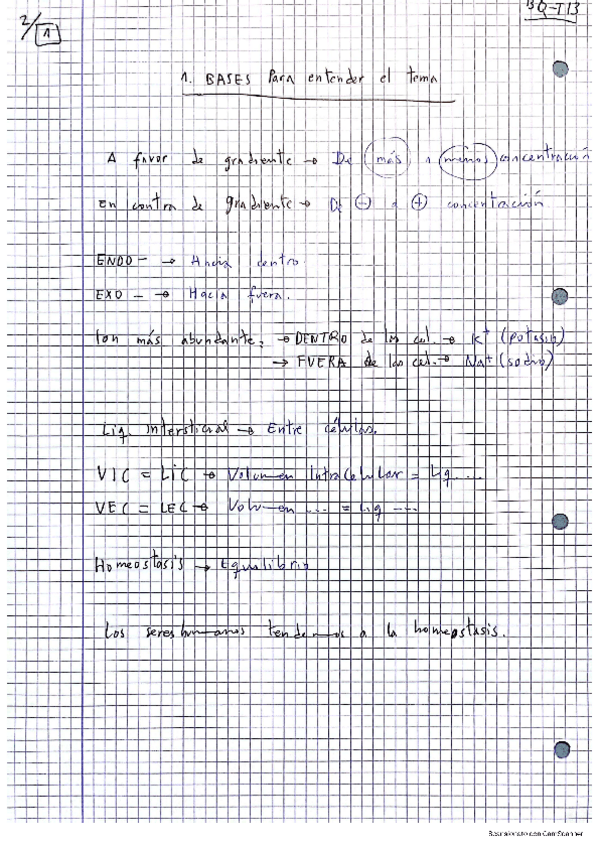 2/1
BQ-T13
1. BASES para entender el tema
A favor de gradiente → De más a menos concentración
En contra de gradiente → De ⊖ a ⊕ concentración
ENDO- → Hacia dentro.
EXO- → Hacia fuera.
Ion más abundante: → DENTRO de las cel. → K+ (potasio)
→ FUERA de las cel. → Na+ (sodio)
Liq. intersticial → Entre células.
VIC = LIC → Volumen Intracelular = Liq.....
VEC = LEC → Volumen ... = Liq ....
Homeostasis → Equilibrio
Los seres humanos tendemos a la homeostasis.
Escaneado con CamScanner